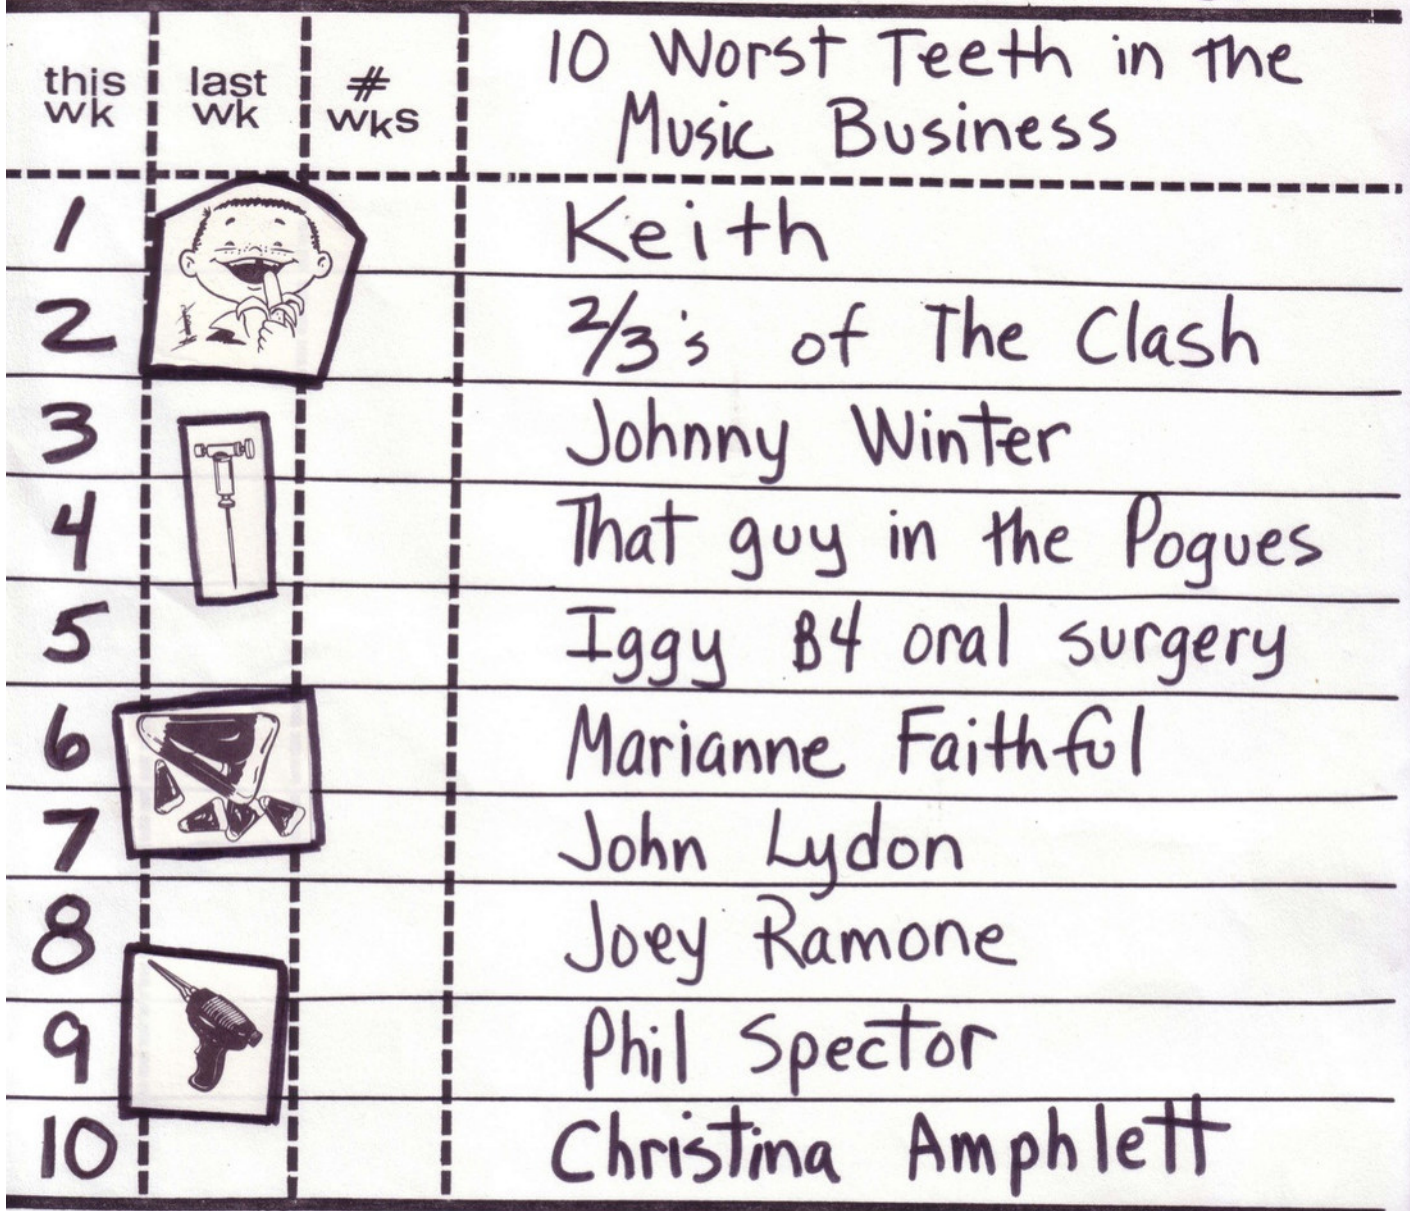 this wk last wk # wks
10 Worst Teeth in the
Music Business
1 Keith
2 2/3's of The Clash
3 Johnny Winter
4 That guy in the Pogues
5 Iggy B4 oral surgery
6 Marianne Faithful
7 John Lydon
8 Joey Ramone
9 Phil Spector
10 Christina Amphlett